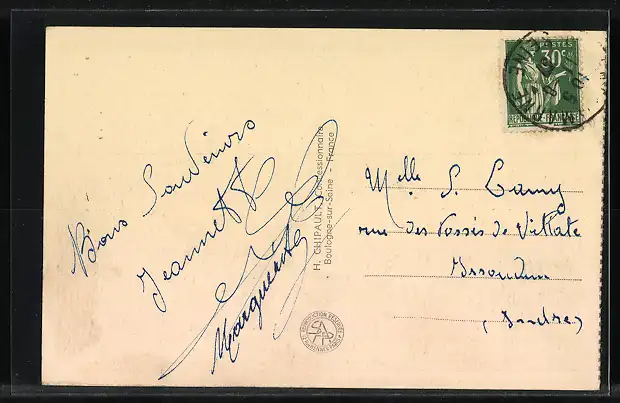 Bons Souvenirs
Jeannette
Marguerite
H. CHIPAULT, Concessionnaire
Boulogne-sur-Seine - France
POSTES
30c
RÉPUBLIQUE FRANÇAISE
Melle S. Lamy
rue des Fossés de Villate
Issoudun
(Indre)